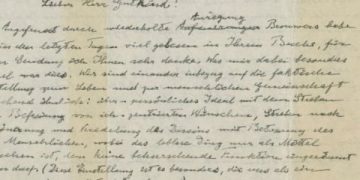 Lieber Herr Gutkind!
Anregung
Angefeuert durch wiederholte Brouwers habe
in den letzten Tagen viel gelesen in Ihrem Buche, für
Sendung ich Ihnen sehr danke. Was mir dabei besonders
fiel war dies. Wir sind einander inbezug auf die faktische
stellung zum Leben und zur menschlichen Gemeinschaft
ehend ähnlich: persönliches Ideal mit dem Streben
Befreiung von ich-zentrierten Wünschen, Streben nach
önerung und Veredelung des Daseins mit Betonung des
Menschlichen, wobei das leblose Ding nur als Mittel
sehen ist, dem keine beherrschende Funktion eingeräumt
darf. (Diese Einstellung ist es besonders, die uns als ein